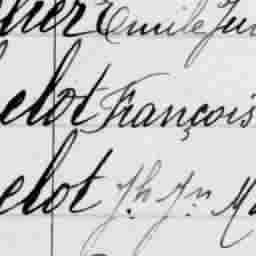 lier Emile Ju
elot François
elot Jh Jn Ma